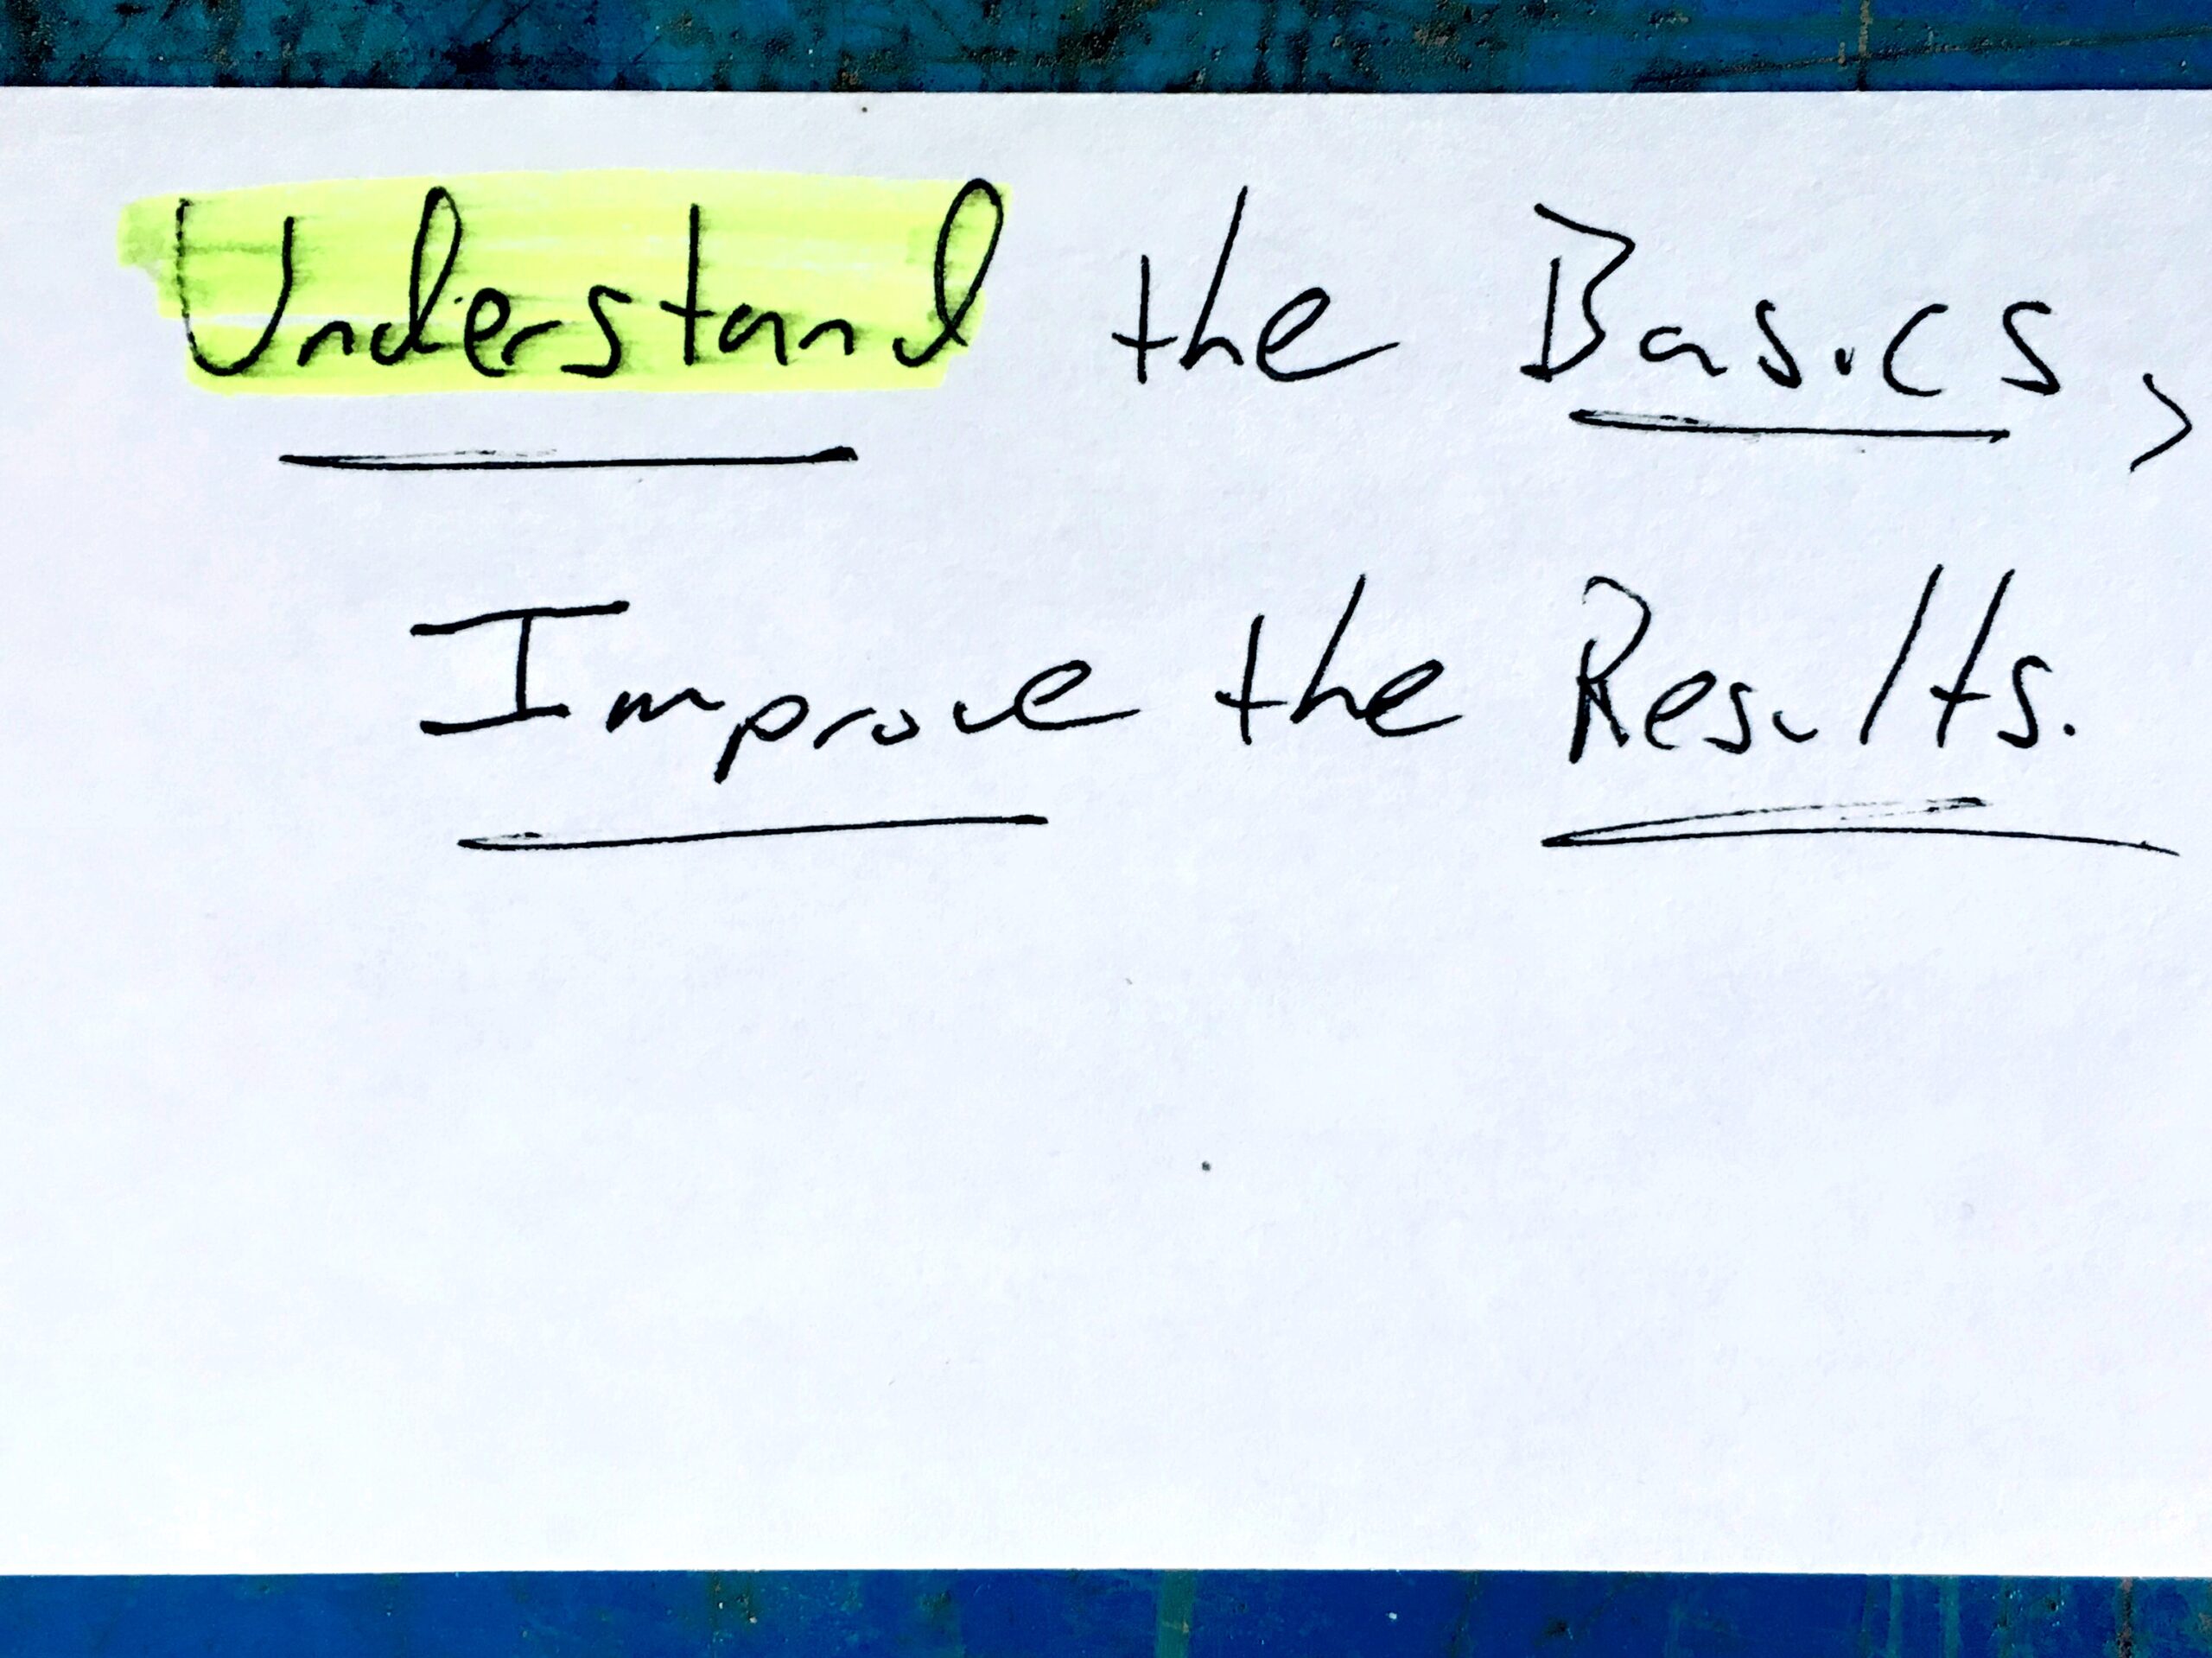 Understand the Basics,
Improve the Results.